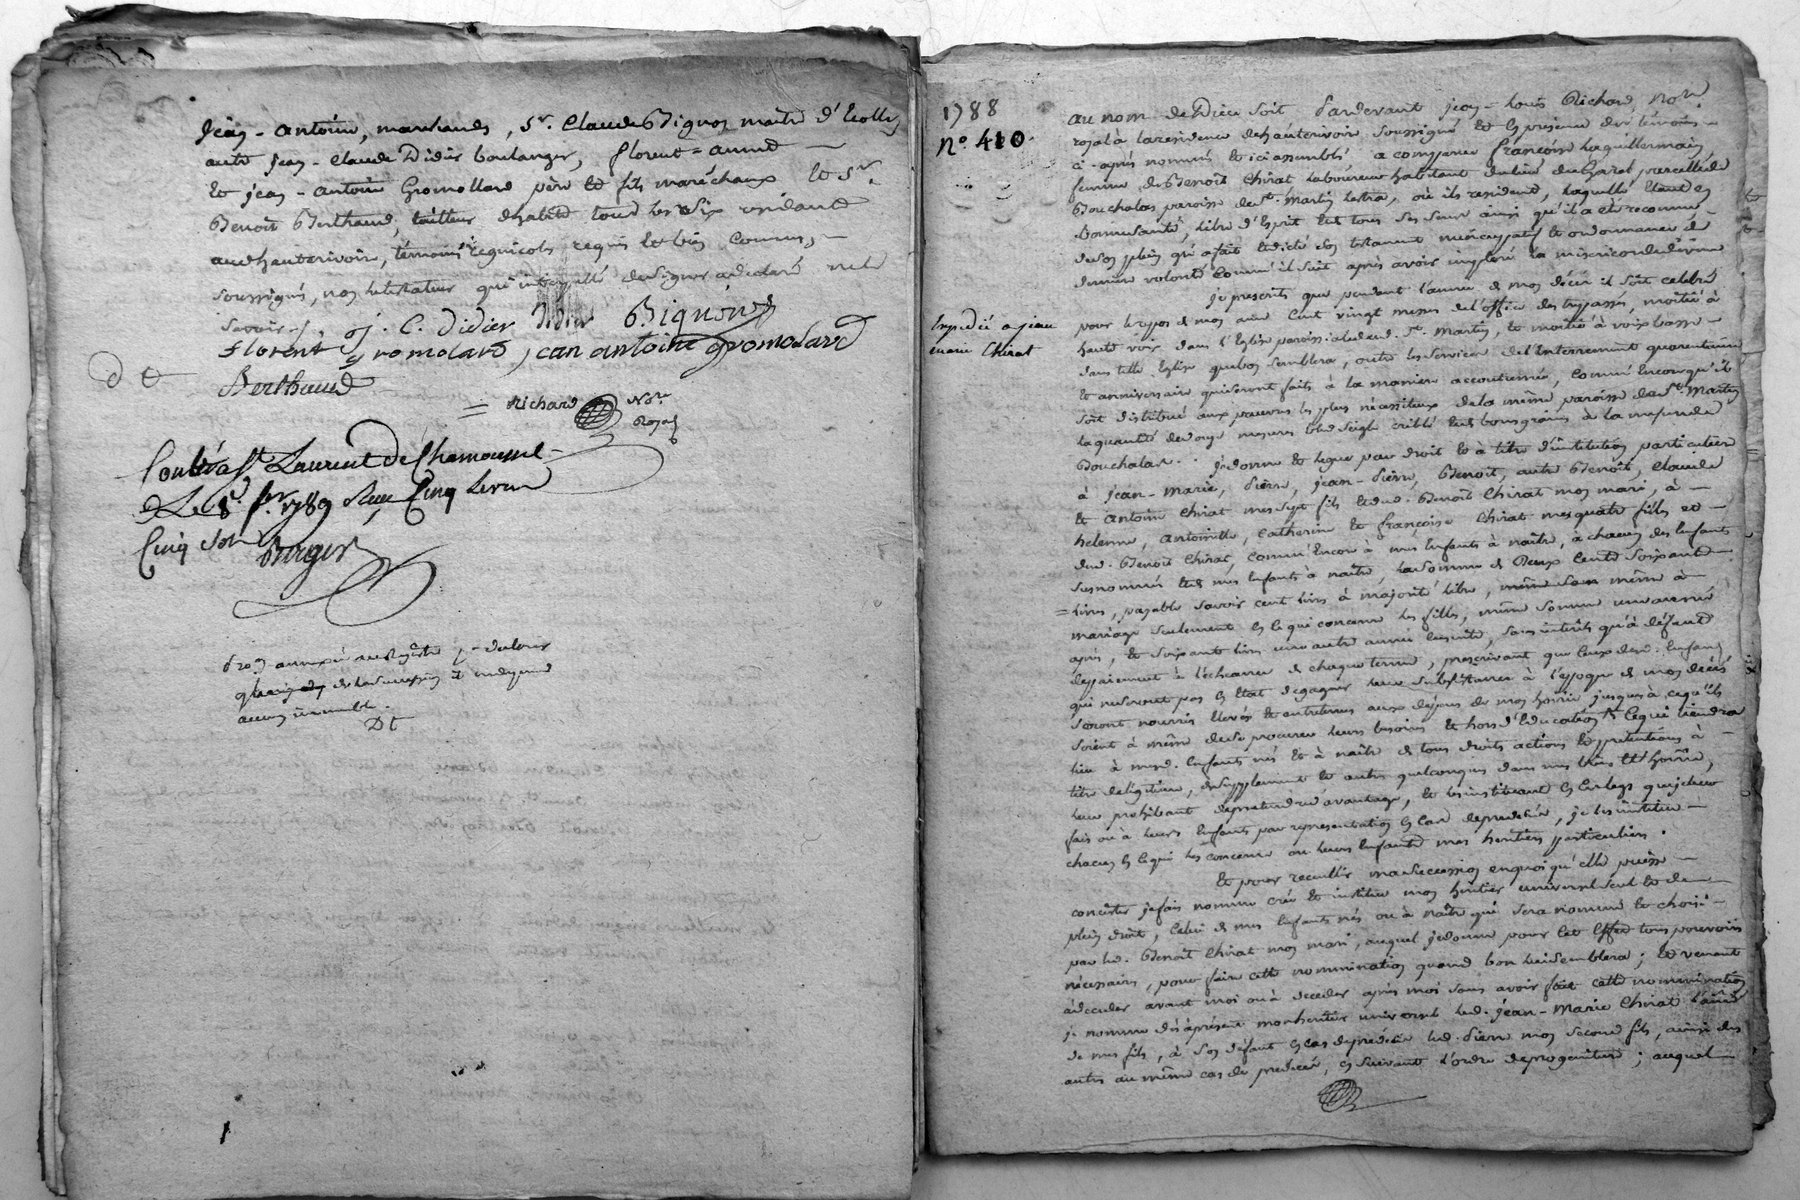 Jean-Antoine, marchands, Sr. Claude Bignon maitre d'Ecolle,
autre Jean-Claude Didier boulanger, florent-aimé
et jean-antoine Gromollard père et fils maréchaux et Sr.
Benoit Berthaud, tailleur d'habits tous les six residants
aud. hauterivoire, témoins regnicols requis et bien connus,
soussignés, non le testateur qui interpellé de signer a déclaré ne le
savoir.
J. C. Didier Didier Bignon
Florent gromolard jean antoine gromolard
Berthaud
Richard No.re
Royal
Contrôlé à St Laurent de Chamousset
Le 8e. 1789 Reçu Cinq Livres
Cinq sols
Berger
de la succession
aucun immeuble.
Dt
1788
N° 410
Expedié a jean
marie Chirat
au nom de Dieu soit pardevant jean-louis Richard, Nore.
royal à la residence de hauterivoire soussigné et en presence des témoins
ci-après nommés et ici assemblés, a comparue françoise
femme de Benoît Chirat laboureur habitant du lieu parcelle de
Bouchalas paroisse de St. Martin lestra, où ils resident, laquelle étant en
bonne santé, libre d'Esprit et de tous ses sens ainsi qu'il a été reconnu,
de son plein gré a fait et dicté son testament nuncupatif et ordonnance de
derniere volonté comme il suit après avoir imploré la misericorde divine
je prescrits que pendant l'année de mon décès il soit celebré
pour le repos de mon ame Cent vingt messes de l'office des trépassés, moitié à
haute voix dans l'Eglise paroissiale dud. St. Martin, et moitié à voix basse
dans telle Eglise que bon semblera, outre les services de l'Enterrement quarantaine
et anniversaire qui seront faits à la maniere accoutumée, comme encore qu'il
soit distribué aux pauvres les plus nécessiteux de la même paroisse de St. Martin
la quantité de douze mesures bled seigle criblé et de bon grain à la mesure de
Bouchalas. je donne et legue par droit et à titre d'institution particuliere
à jean-marie, pierre, jean-pierre, Benoit, autre Benoît, Claude
et antoine Chirat mes sept fils et dud. Benoît Chirat mon mari, à
helenne, antoinette, Catherine et françoise Chirat mes quatre filles et
dud. Benoit Chirat, comm'encore à mes Enfants à naître, à chacun des Enfants
susnommés et de mes Enfants à naître, la somme de Deux Cents soixante
livres, payable savoir cent livres à majorité libre, même son même à
mariage seulement en ce qui concerne les filles, même somme une année
après, et soixante livres une autre année ensuite, sans intérêts qu'à défaut
de paiement à l'échéance de chaque terme, prescrivant que ceux de mes. Enfans
qui ne seront pas en Etat de gagner leur subsistance à l'epoque de mon décès
seront nourris élevés et entretenus aux dépens de mon hoirie jusques à ce qu'ils
soient à même de se procurer leurs besoins et hors d'Education ce qui tiendra
lieu à mesd. Enfants nés et à naître de tous droits actions et pretentions à
titre de légitime, de supplement et autres quelconques dans mes biens et hoirie,
leur prohibant de pretendre davantage, et les instituant en ce legs que je leur
fais ou à leurs Enfants par representation en cas de predécès, je les institue
chacun en ce qui les concerne ou leurs Enfants mes heritiers particuliers.
Et pour recueillir ma succession en quoi qu'elle puisse
consister je fais nomme crée et institue mon heritier universel seul et de
plein droit, celui de mes Enfants nés ou à naître qui sera nommé et choisi
par led. Benoît Chirat mon mari, auquel je donne pour cet Effet tous pouvoirs
nécessaires, pour faire cette nommination quand bon lui semblera; et venant
à décéder avant moi ou à deceder après moi sans avoir fait cette nommination
je nomme dès à présent mon heritier universel led. jean-Marie Chirat l'aîné
de mes fils, à son défaut en cas de predécès led. pierre mon second fils, ainsi des
autres au même cas de predécès, en suivant l'ordre de progeniture; auquel